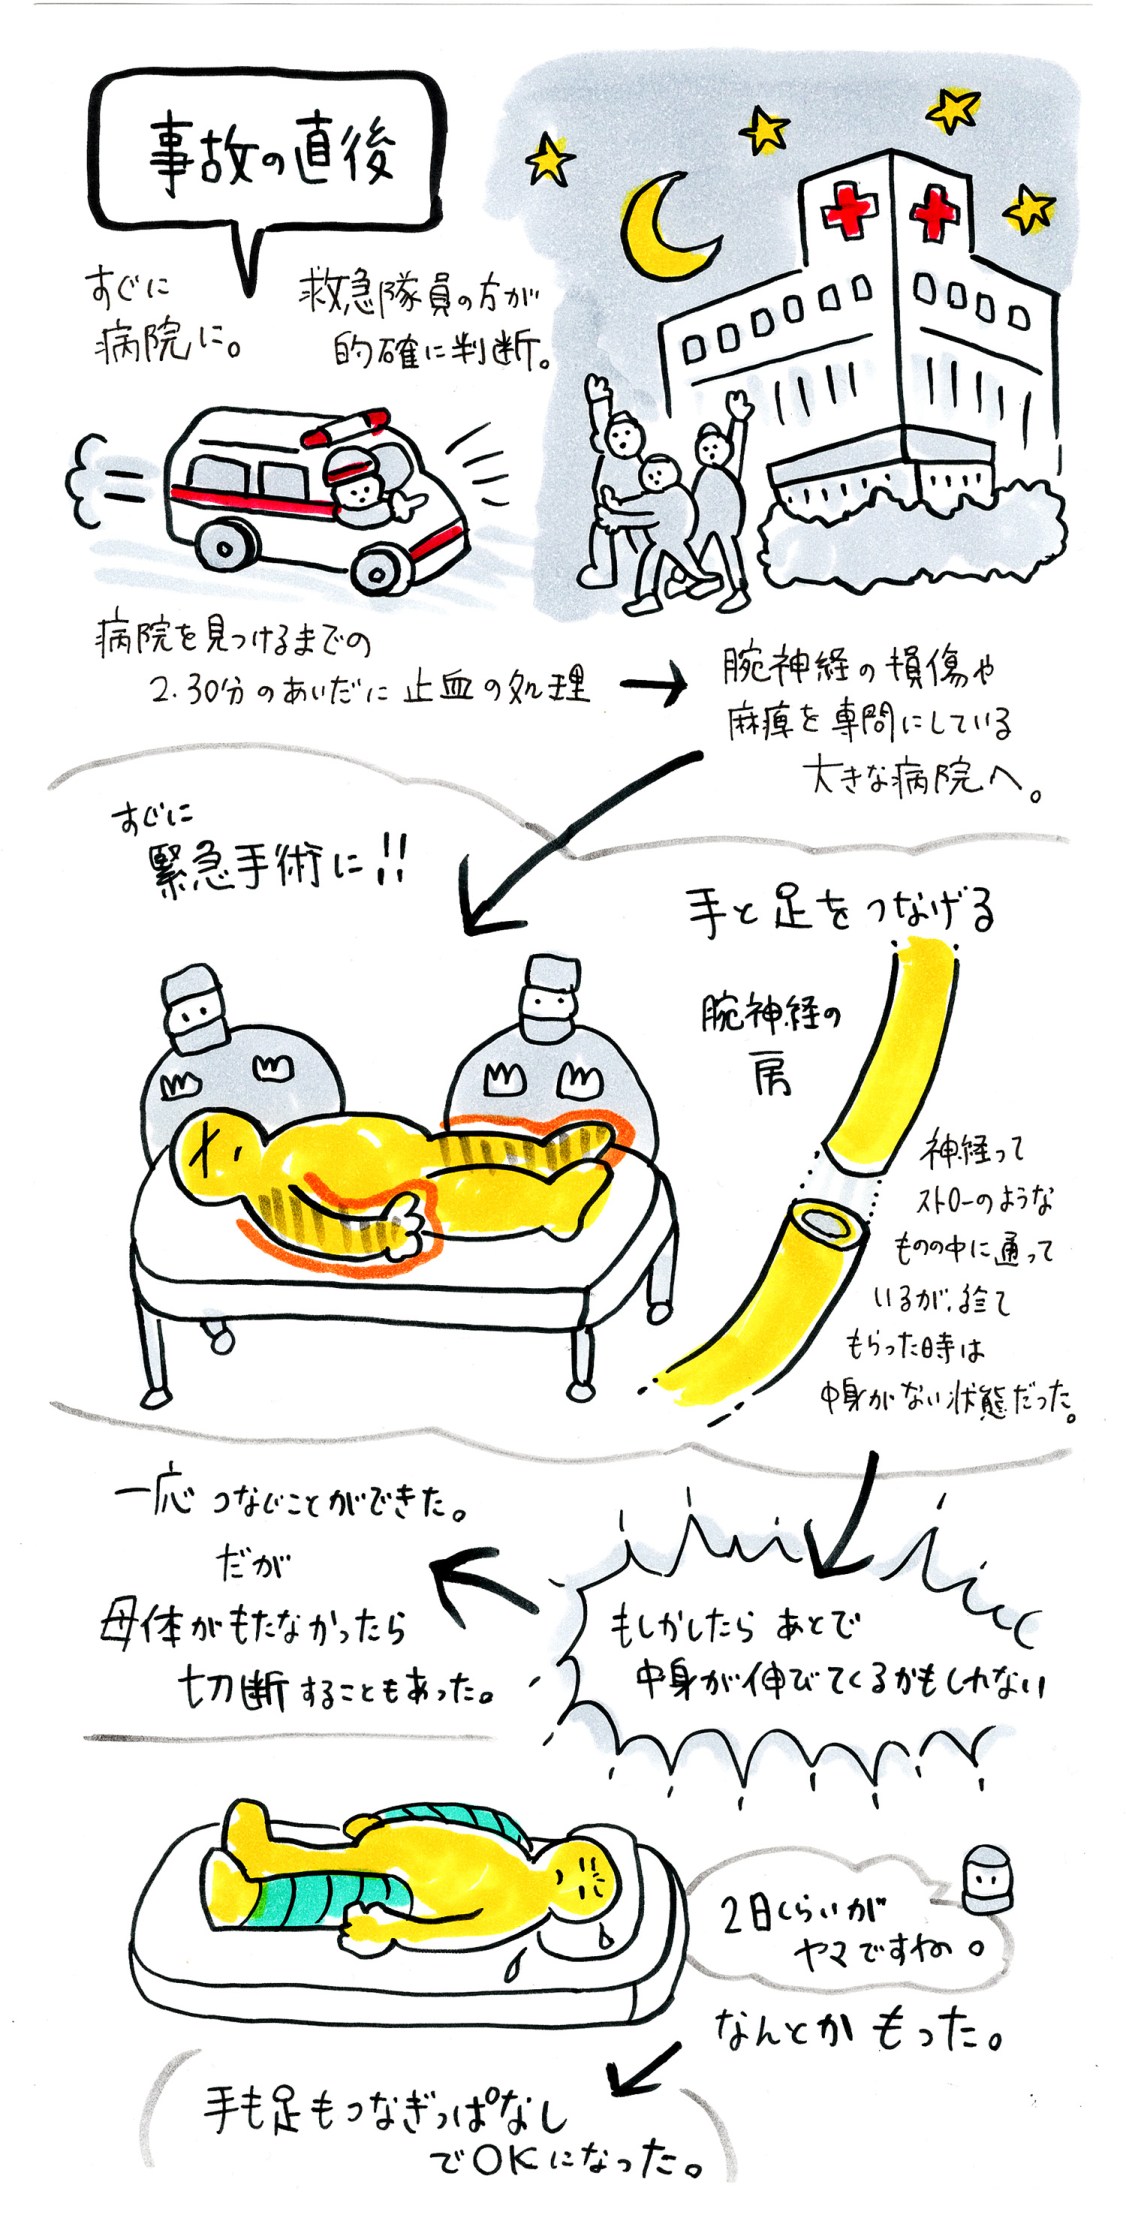 事故の直後
すぐに
病院に。
救急隊員の方が
的確に判断。
病院を見つけるまでの
2.30分のあいだに止血の処理 →
腕神経の損傷や
麻痺を専門にしている
大きな病院へ。
すぐに
緊急手術に!!
手と足をつなげる
腕神経の
房
神経って
ストローのような
ものの中に通って
いるが、診て
もらった時は
中身がない状態だった。
もしかしたら あとで
中身が伸びてくるかもしれない
一応 つなぐことができた。
だが
母体がもたなかったら
切断することもあった。
2日くらいが
ヤマですね。
なんとか もった。
手も足もつなぎっぱなし
でOKになった。